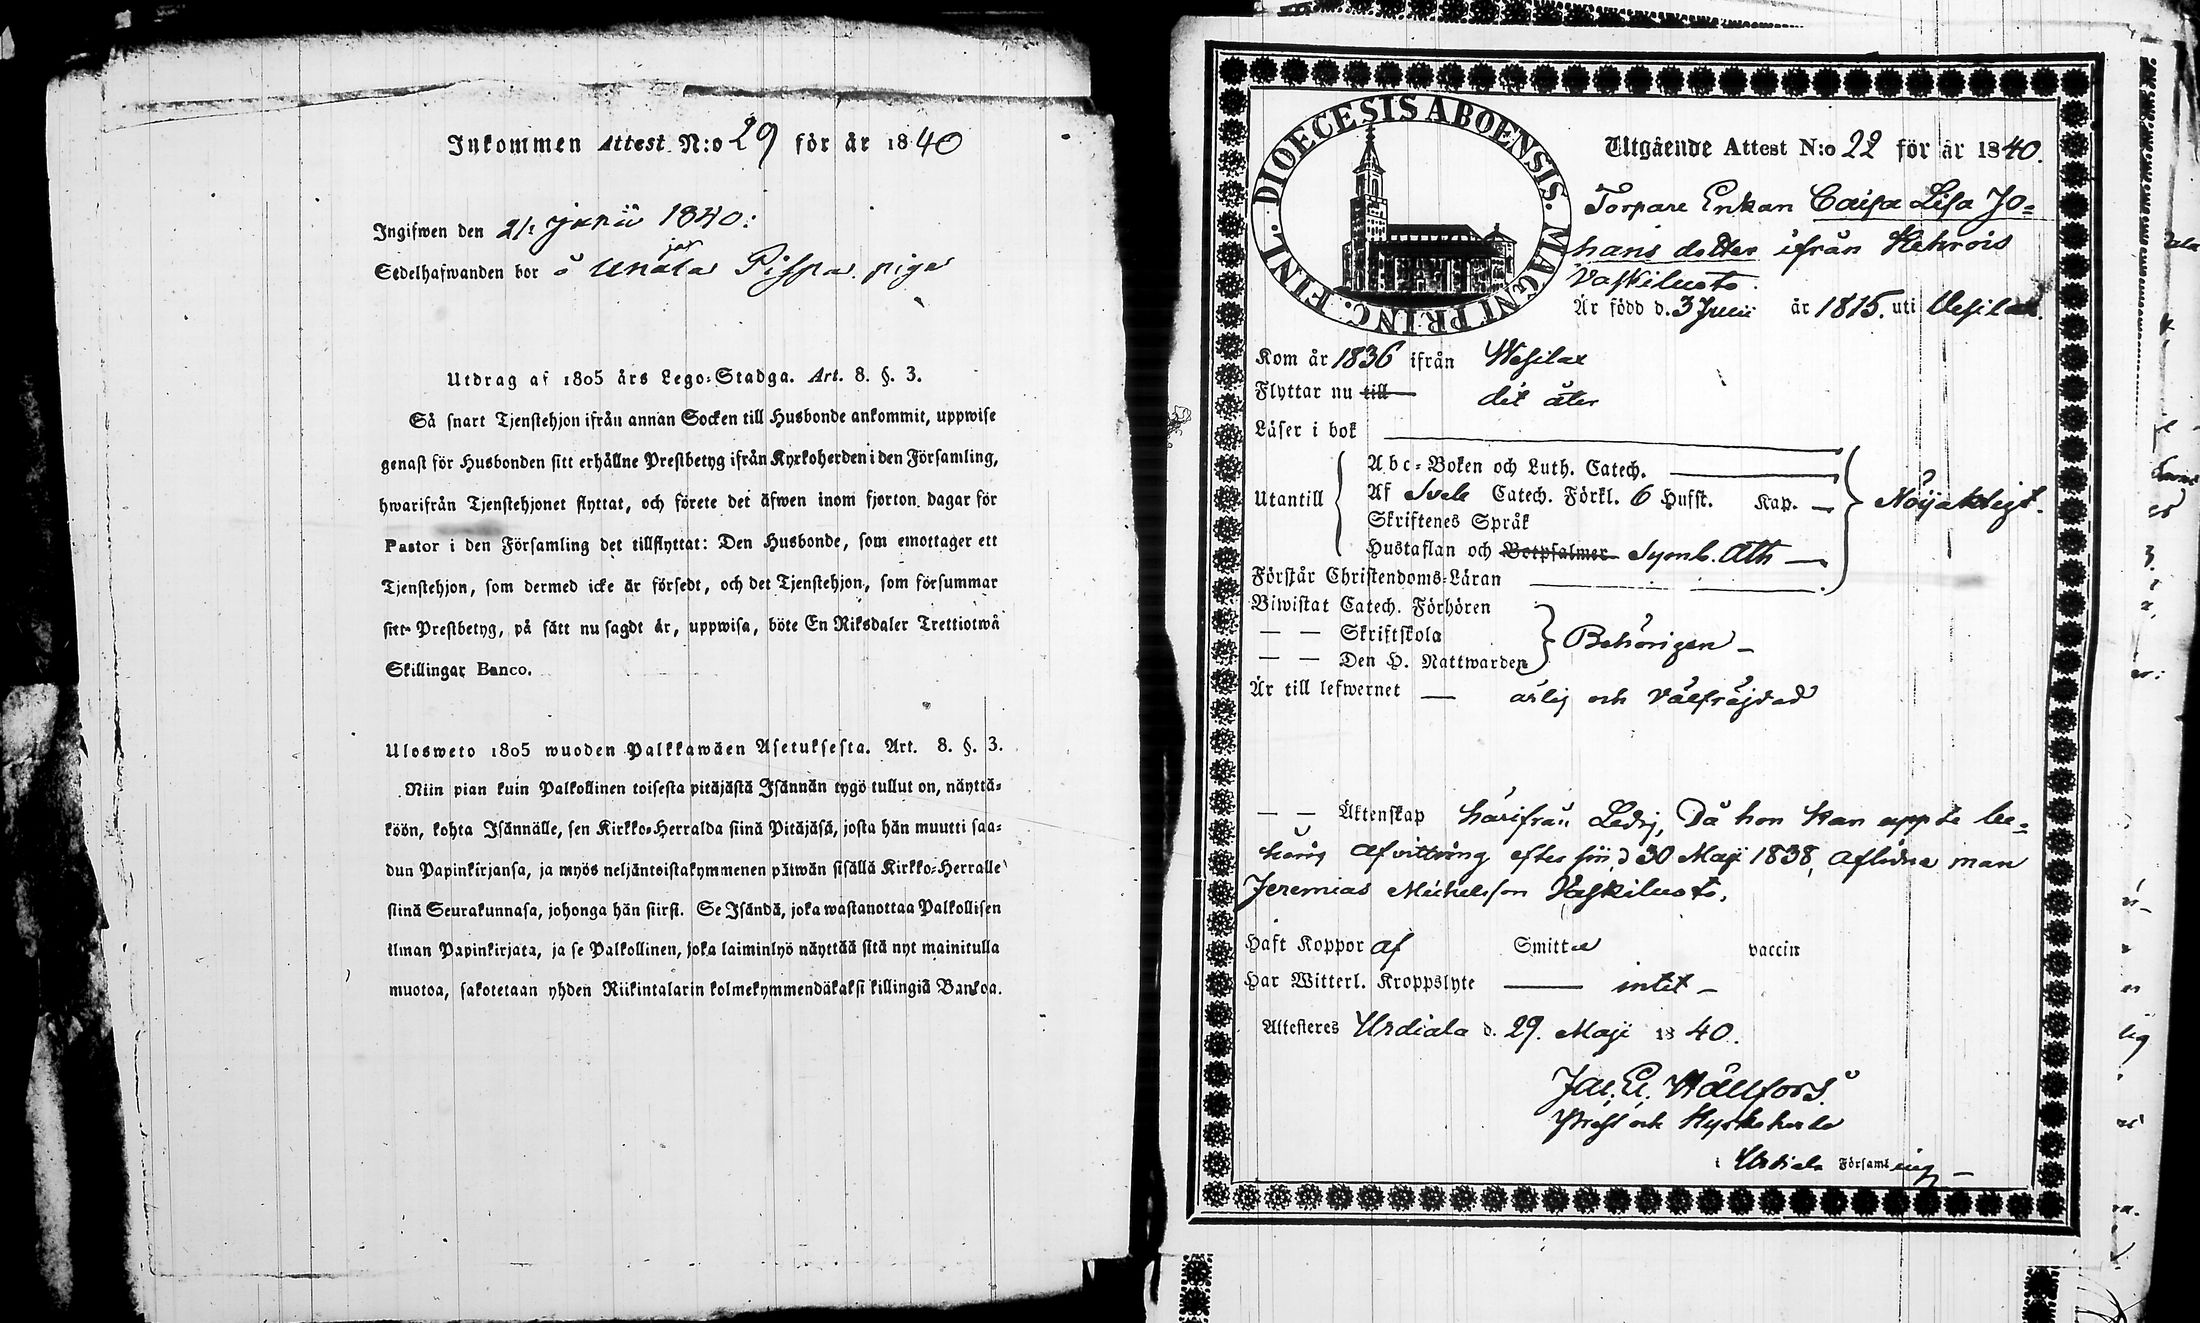 Inkommen Attest N:o 29 för år 1840
Ingifwen den 21: junii 1840:
Sedelhafwanden bor å Pispa piga
Utdrag af 1805 års Lego-Stadga. Art. 8. §. 3.
Så snart Tjenstehjon ifrån annan Socken till Husbonde ankommit, uppwise
genast för Husbonden sitt erhållne Prestbetyg ifrån Kyrkoherden i den Församling,
hwarifrån Tjenstehjonet flyttat, och förete det äfwen inom fjorton dagar för
Pastor i den Församling det tillflyttat: Den Husbonde, som emottager ett
Tjenstehjon, som dermed icke är försedt, och det Tjenstehjon, som försummar
sitt Prestbetyg, på sätt nu sagdt är, uppwisa, böte En Riksdaler Trettiotwå
Skillingar Banco.
Ulosweto 1805 wuoden Palkkawäen Asetuksesta. Art. 8. §. 3.
Niin pian kuin Palkollinen toisesta pitäjästä Isännän tygö tullut on, näyttä-
köön, kohta Isännälle, sen Kirkko-Herralda siinä Pitäjäsä, josta hän muutti saa-
dun Papinkirjansa, ja myös neljäntoistakymmenen päiwän sisällä Kirkko-Herralle
siinä Seurakunnasa, johonga hän siirsi. Se Isändä, joka wastanottaa Palkollisen
ilman Papinkirjata, ja se Palkollinen, joka laiminlyö näyttää sitä nyt mainitulla
muotoa, sakotetaan yhden Riikintalarin kolmekymmendäkaksi killingiä Bankoa.
DIOECESIS ABOENSIS. MAGNI PRINC. FINL.
Utgående Attest N:o 22 för år 1840.
Torpare Enkan Caisa Lisa Jo-
hans dotter ifrån Kehrois
Vaskiluoto.
Är född d. 3 Junii år 1815. uti Vesilax.
Kom år 1836 ifrån Wesilax
Flyttar nu till dit åter
Läser i bok
Abc-Boken och Luth. Catech.
Utantill Af Sveb Catech. Förkl. 6 Hufst. Kap. Nöyaktigt.
Skriftenes Språk
Hustaflan och Botpsalmer Symb. Ath
Förstår Christendoms-Läran
Biwistat Catech. Förhören
— — Skriftskola Behörigen
— — Den H. Nattwarden
Är till lefwernet — ärlig och välfräjdad
— — Äktenskap härifrån Ledig, Då hon kan uppte be-
hörig afvittring efter sin d 30 Maji 1838, aflidne man
Jeremias Michelsson Vaskiluoto.
Haft Koppor af Smitta vaccin
Har Witterl. Kroppslyte — intet —
Attesteres Urdiala d. 29. Maji 1840.
Jac. E. Wallfors
Präst och Kyrkoherde
i Urdiala Församling —